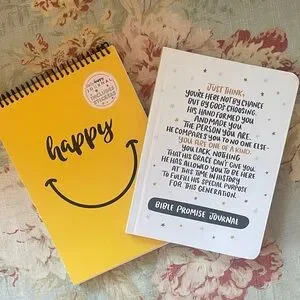 happy
INCLUDES
STICKERS
happy
JUST THINK,
YOU'RE HERE NOT BY CHANCE
BUT BY GOD'S CHOOSING.
HIS HAND FORMED YOU
AND MADE YOU
THE PERSON YOU ARE.
HE COMPARES YOU TO NO ONE ELSE.
YOU ARE ONE OF A KIND.
YOU LACK NOTHING
THAT HIS GRACE CAN'T GIVE YOU.
HE HAS ALLOWED YOU TO BE HERE
AT THIS TIME IN HISTORY
TO FULFILL HIS SPECIAL PURPOSE
FOR THIS GENERATION.
BIBLE PROMISE JOURNAL